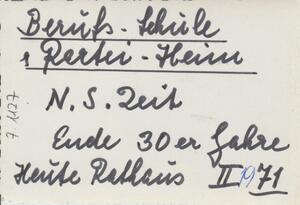 Berufs-Schule
1 Partei-Heim
N.S. Zeit
Ende 30er Jahre
Heute Rathaus II 1971
7.1127